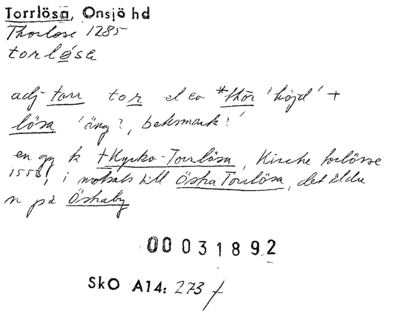 Torrlösa, Onsjö hd
Thorlose 1285
torløsa
adj torr tor el ev *thor 'höjd' +
lösa 'äng?, betesmark?'
en gg k +Kyrko-Torrlösa, Kirche torløsse
1558, i motsats till Östra Torrlösa, det äldre
n på Östraby
00031892
SkO A14: 273 f